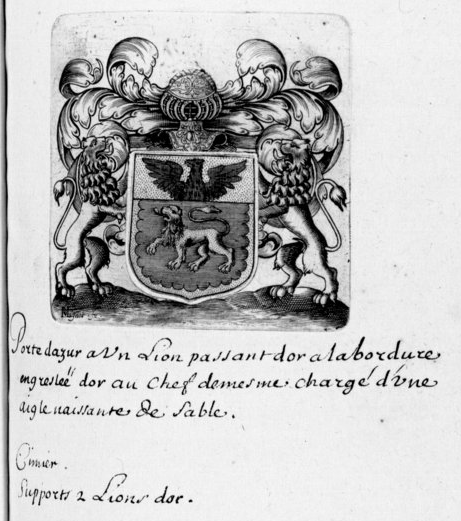 Porte dazur a Vn Lion passant dor a la bordure
engreslée dor au Chef de mesme chargé d'Vne
aigle naissante de sable.
Cimier.
Supports 2 Lions dor.